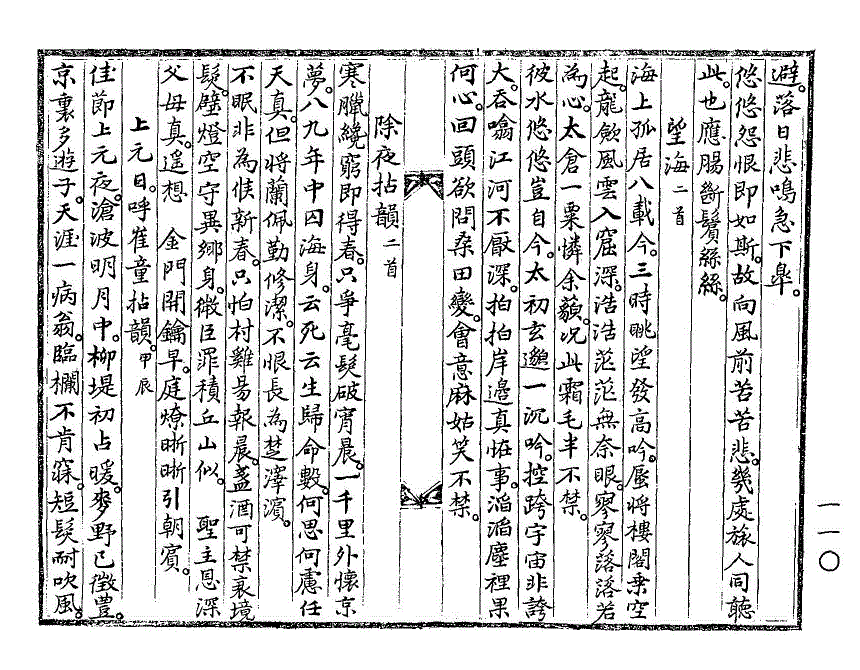 避。落日悲鳴急下皐。
悠悠怨恨即如斯。故向風前苦苦悲。幾處旅人同聽
此。也應腸斷鬢絲絲。
望海二首
海上孤居八載今。三時眺望發高吟。蜃將樓閣乗空
起。龍歛風雲入窟深。浩浩茫茫無奈眼。寥寥落落若
為心。太倉一粟憐余藐。况此霜毛半不禁。
彼水悠悠豈自今。太初玄邈一沉吟。控跨宇宙非誇
大。吞噏江河不厭深。拍拍岸邊真恠事。滔滔塵裡果
何心。回頭欲問桑田變。會意麻姑笑不禁。
除夜拈韻二首
寒臘纔窮即得春。只爭毫髮破宵晨。一千里外懷京
夢。八九年中囚海身。云死云生歸命數。何思何慮任
天真。但將蘭佩勤修潔。不恨長為楚澤濱。
不眠非為候新春。只怕村雞昜報晨。盞酒可禁衰境
髮。壁燈空守異鄉身。微臣罪積丘山似。 聖主恩深
父母真。遥想 金門開鑰早。庭燎晣晣引朝賓。
上元日。呼崔童拈韻。甲辰
佳節上元夜。滄波明月中。柳堤初占暖。麥野已徵豊。
京裏多遊子。天涯一病翁。臨欄不肯寐。短髮耐吹風。
一一〇